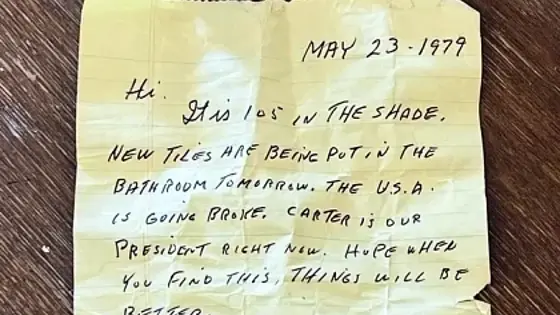 MAY 23-1979
Hi.
It is 105 IN THE SHADE.
NEW TILES ARE BEING PUT IN THE
BATHROOM TOMORROW. THE U.S.A.
IS GOING BROKE. CARTER IS OUR
PRESIDENT RIGHT NOW. HOPE WHEN
YOU FIND THIS, THINGS WILL BE
BETTER.